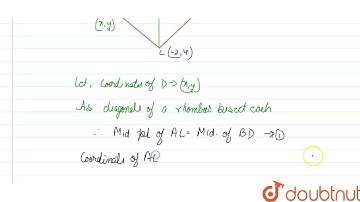 (x,y)
C (-2,4)
Let, Coordinates of D → (x,y)
As diagonals of a rhombus bisect each
∴ Mid. pt. of AC = Mid. of BD → ①
Coordinate of AC
doubtnut